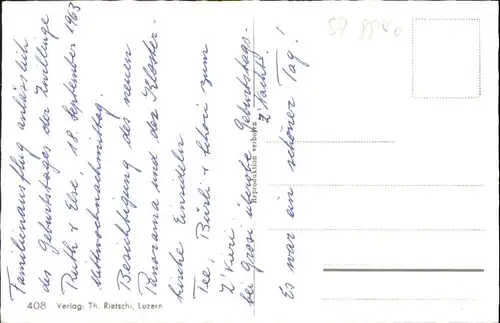 Familienausflug anlässlich
des Geburtstages der Zwillinge
Ruth & Else, 18. September 1963
Mittwochnachmittag.
Besichtigung des neuen
Panorama und der Kloster-
kirche Einsideln
Tee, Bürli & Choci zum
Z'Vieri.
bei Grosi überobe Geburtstags-
Z'Nacht!
Es war ein schöner Tag!
408 Verlag: Th. Rietschi, Luzern
Reproduktion verboten